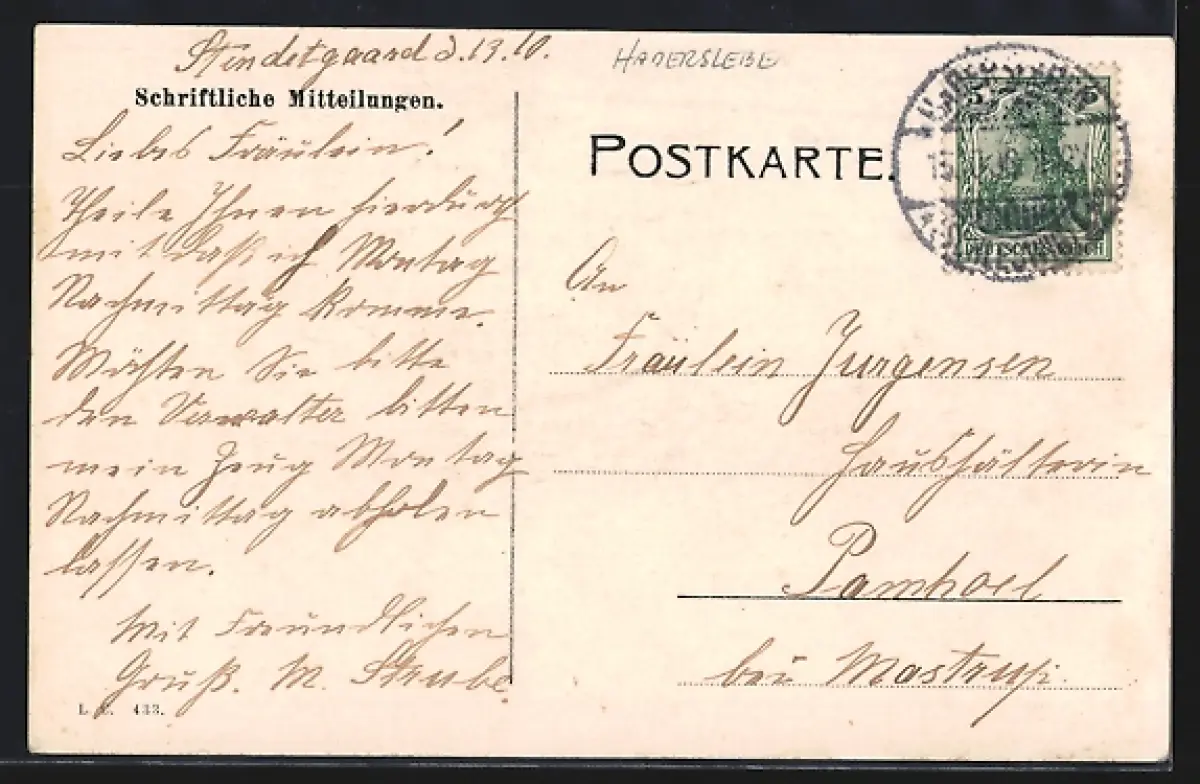 Stendetgaard d. 13. 10.
HADERSLEBE
Schriftliche Mitteilungen.
Liebes Fräulein!
Theile Ihnen hierdurch
mit daß ich Montag
Nachmittag komme.
Möchten Sie bitte
den Verwalter bitten
mein Zeug Montag
Nachmittag abholen
lassen.
Mit Freundlichen
Gruß. M. Strube
L. 433.
POSTKARTE.
5
DEUTSCHES REICH
An
Fräulein Jurgensen
Haushälterin
Pamhoel
bei Mastrup.